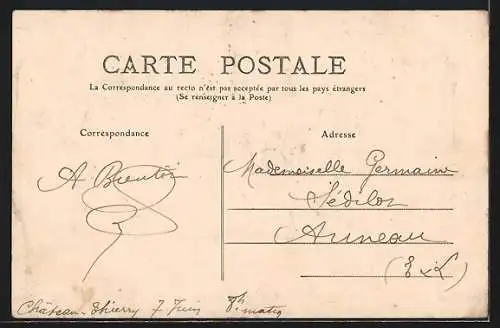 CARTE POSTALE
La Correspondance au recto n'est pas acceptée par tous les pays étrangers
(Se renseigner à la Poste)
Correspondance
Adresse
A Bientôt
Mademoiselle Germaine
Sédillot
Auneau
(E & L)
Château-Thierry 7 Juin 8h matin